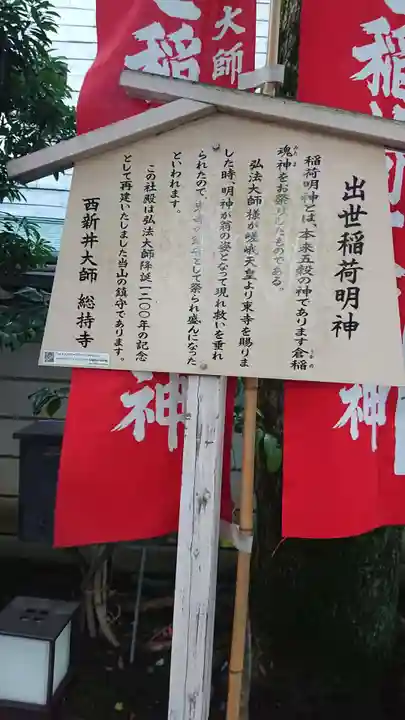 出世稲荷明神
稲荷明神とは、本来五穀の神であります倉稲
魂神をお祭りしたものである。
弘法大師様が嵯峨天皇より東寺を賜りま
した時、明神が翁の姿となって現れ救いを垂れ
られたので、東寺の鎮守として祭られ盛んになった
といわれます。
この社殿は弘法大師降誕一二〇〇年の記念
として再建いたしました当山の鎮守であります。
西新井大師 総持寺
大師
稲
神
神